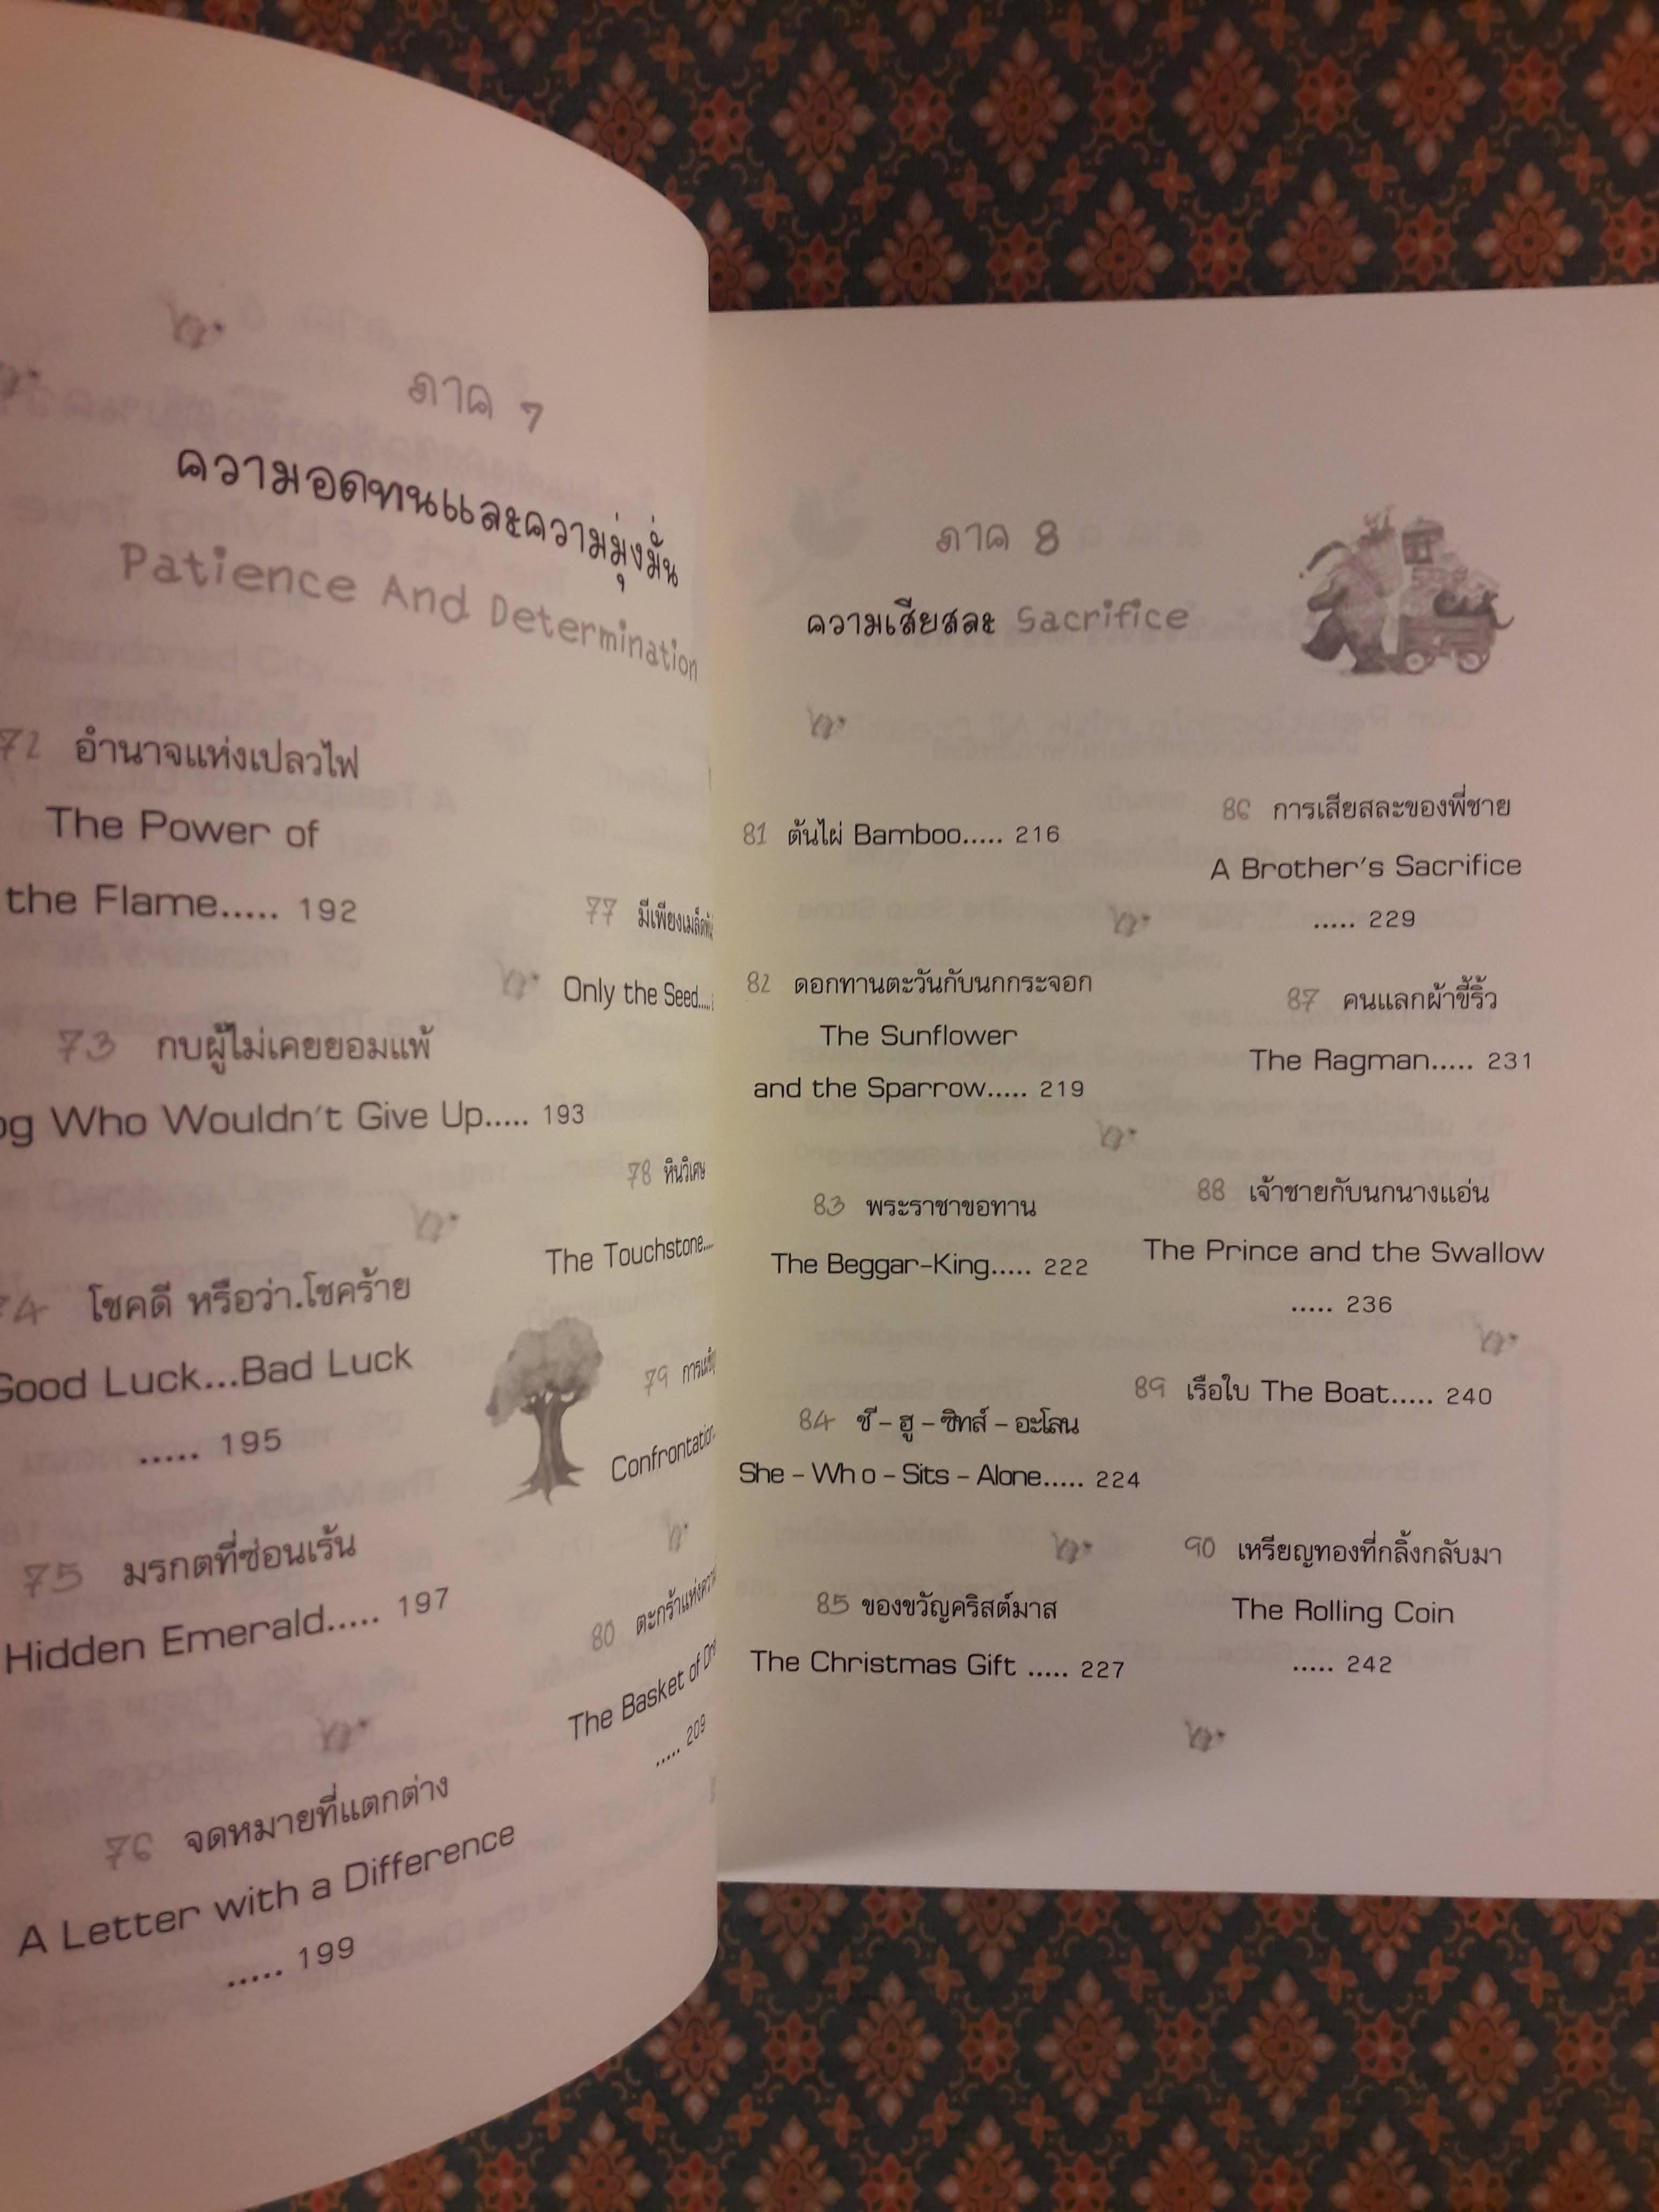 ภาค 7
ความอดทนและความมุ่งมั่น
Patience And Determination
72 อำนาจแห่งเปลวไฟ
The Power of
the Flame..... 192
73 กบผู้ไม่เคยยอมแพ้
Who Wouldn't Give Up..... 193
74 โชคดี หรือว่า.โชคร้าย
Good Luck...Bad Luck
..... 195
75 มรกตที่ซ่อนเร้น
Hidden Emerald..... 197
76 จดหมายที่แตกต่าง
A Letter with a Difference
..... 199
77 มีเพียงเมล็ด
Only the Seed....
78 หินวิเศษ
The Touchstone....
79
80 ตะกร้าแห่ง
The Basket of
..... 209
ภาค 8
ความเสียสละ Sacrifice
81 ต้นไผ่ Bamboo..... 216
82 ดอกทานตะวันกับนกกระจอก
The Sunflower
and the Sparrow..... 219
83 พระราชาขอทาน
The Beggar-King..... 222
84 ชี - ฮู - ซิทส์ - อะโลน
She - Who - Sits - Alone..... 224
85 ของขวัญคริสต์มาส
The Christmas Gift ..... 227
86 การเสียสละของพี่ชาย
A Brother's Sacrifice
..... 229
87 คนแลกผ้าขี้ริ้ว
The Ragman..... 231
88 เจ้าชายกับนกนางแอ่น
The Prince and the Swallow
..... 236
89 เรือใบ The Boat..... 240
90 เหรียญทองที่กลิ้งกลับมา
The Rolling Coin
..... 242